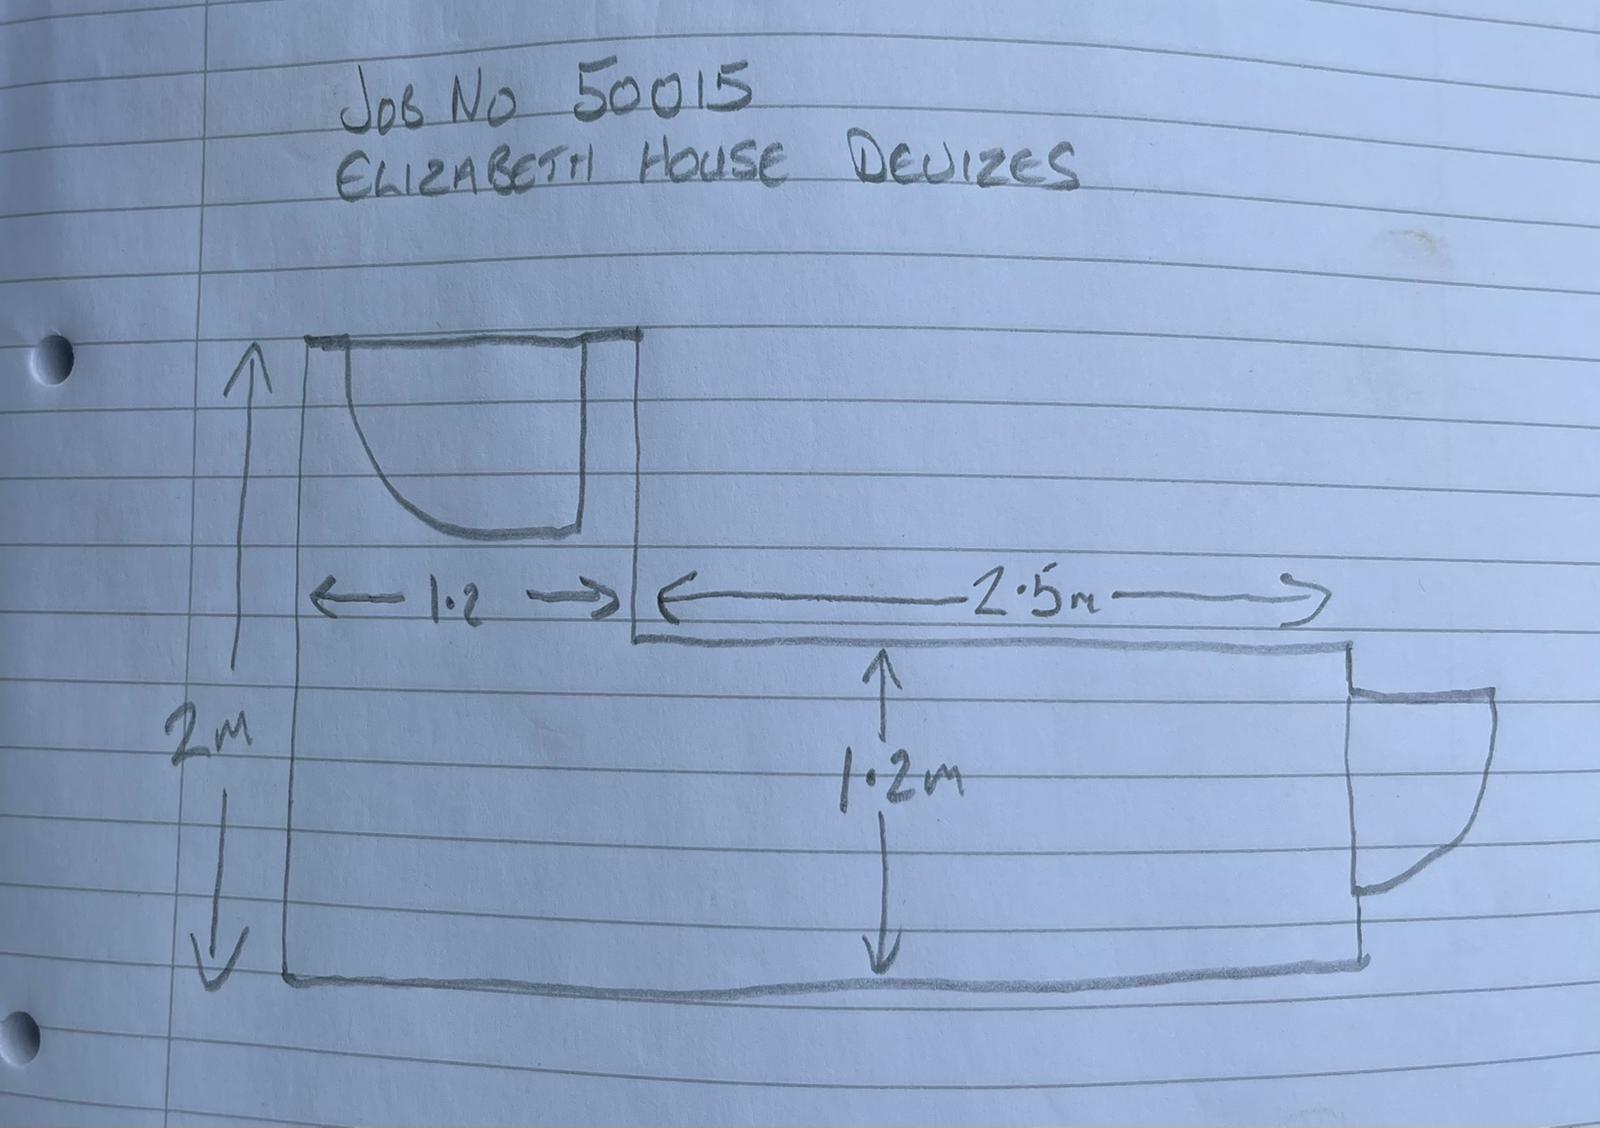 JOB NO 50015
ELIZABETH HOUSE DEVIZES
1.2
2.5m
2m
1.2m